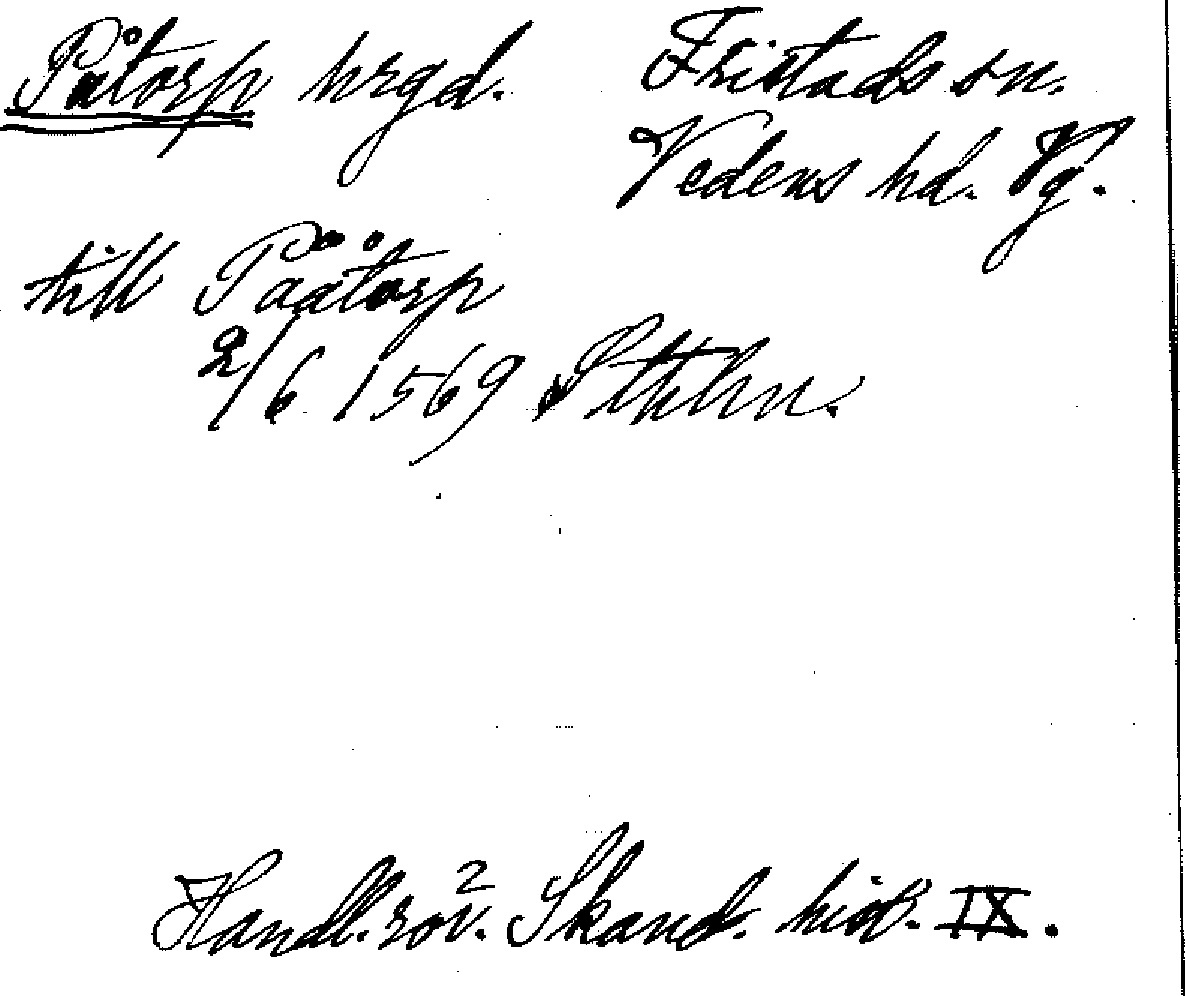 Påtorp hrgd. Fristads sn.
Vedens hd. Vg.
till Påätorp
2/6 1569 Sthlm.
Handl. rör. Skand. hist. IX.